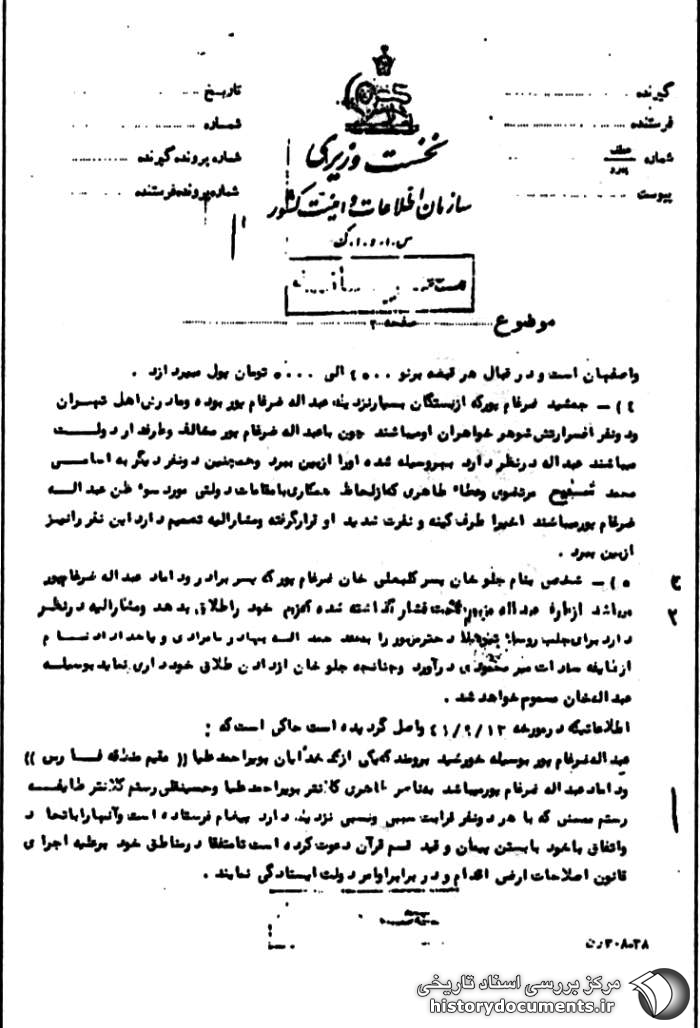 گیرنده
فرستنده
شماره عطف پیرو
پیوست
نخست وزیری
سازمان اطلاعات و امنیت کشور
س.ا.و.ا.ک
تاریخ
شماره
شماره پرونده گیرنده
شماره پرونده فرستنده
موضوع صفحه ۲
واصفهان است و در قبال هر قبضه برنو ۴۵۰۰ الی ۵۰۰۰ تومان پول میپردازد .
۴) - جمشید ضرغام پور که از بستگان بسیار نزدیک عبداله ضرغام پور بوده و مادرش اهل تهران
و دو نفر افسر ارتش شوهر خواهران او میباشند چون با عبداله ضرغام پور مخالف و طرفدار دولت
میباشند عبداله در نظر دارد بهر وسیله شده او را از بین ببرد وهمچنین دو نفر دیگر به اسامی
محمد مرتضوی وعطاء طاهری که از لحاظ همکاری با مقامات دولتی مورد سوء ظن عبداله
ضرغام پور میباشند اخیرا طرف کینه و نفرت شدید او قرار گرفته و مشارالیه تصمیم دارد این نفر را نیز
از بین ببرد .
۵) - شخصی بنام جلو خان پسر کلبعلی خان ضرغام پور که پسر برادر و داماد عبداله ضرغام پور
میباشد از طرف عبداله مزبور تحت فشار گذاشته شده که خود را طلاق بدهد و مشارالیه در نظر
دارد برای جلب دختر مزبور را بعقد حمد اله بهادر و یا خداداد نام
از طایفه سادات میر در آورد و چنانچه جلو خان از دادن طلاق خودداری نماید بوسیله
عبداله خان مسموم خواهد شد .
اطلاعاتیکه در مورخه ۴۱/۹/۱۲ واصل گردیده است حاکی است که :
عبداله ضرغام پور بوسیله خورشید برومند که یکی از کدخدایان بویراحمد علیا (( مقیم منطقه فارس ))
و داماد عبداله ضرغام پور میباشد به ناصر طاهری کلانتر بویراحمد علیا و حسینقلی رستم کلانتر طایفه
رستم ممسنی که با هر دو نفر قرابت سببی ونسبی نزدیک دارد پیغام فرستاده است وآنها را باتحاد
واتفاق باخود با بستن پیمان و قید قسم قرآن دعوت کرده است تا متفقا در مناطق خود بر علیه اجرای
قانون اصلاحات ارضی اقدام و در برابر اوامر دولت ایستادگی نمایند .
مرکز بررسی اسناد تاریخی
historydocuments.ir